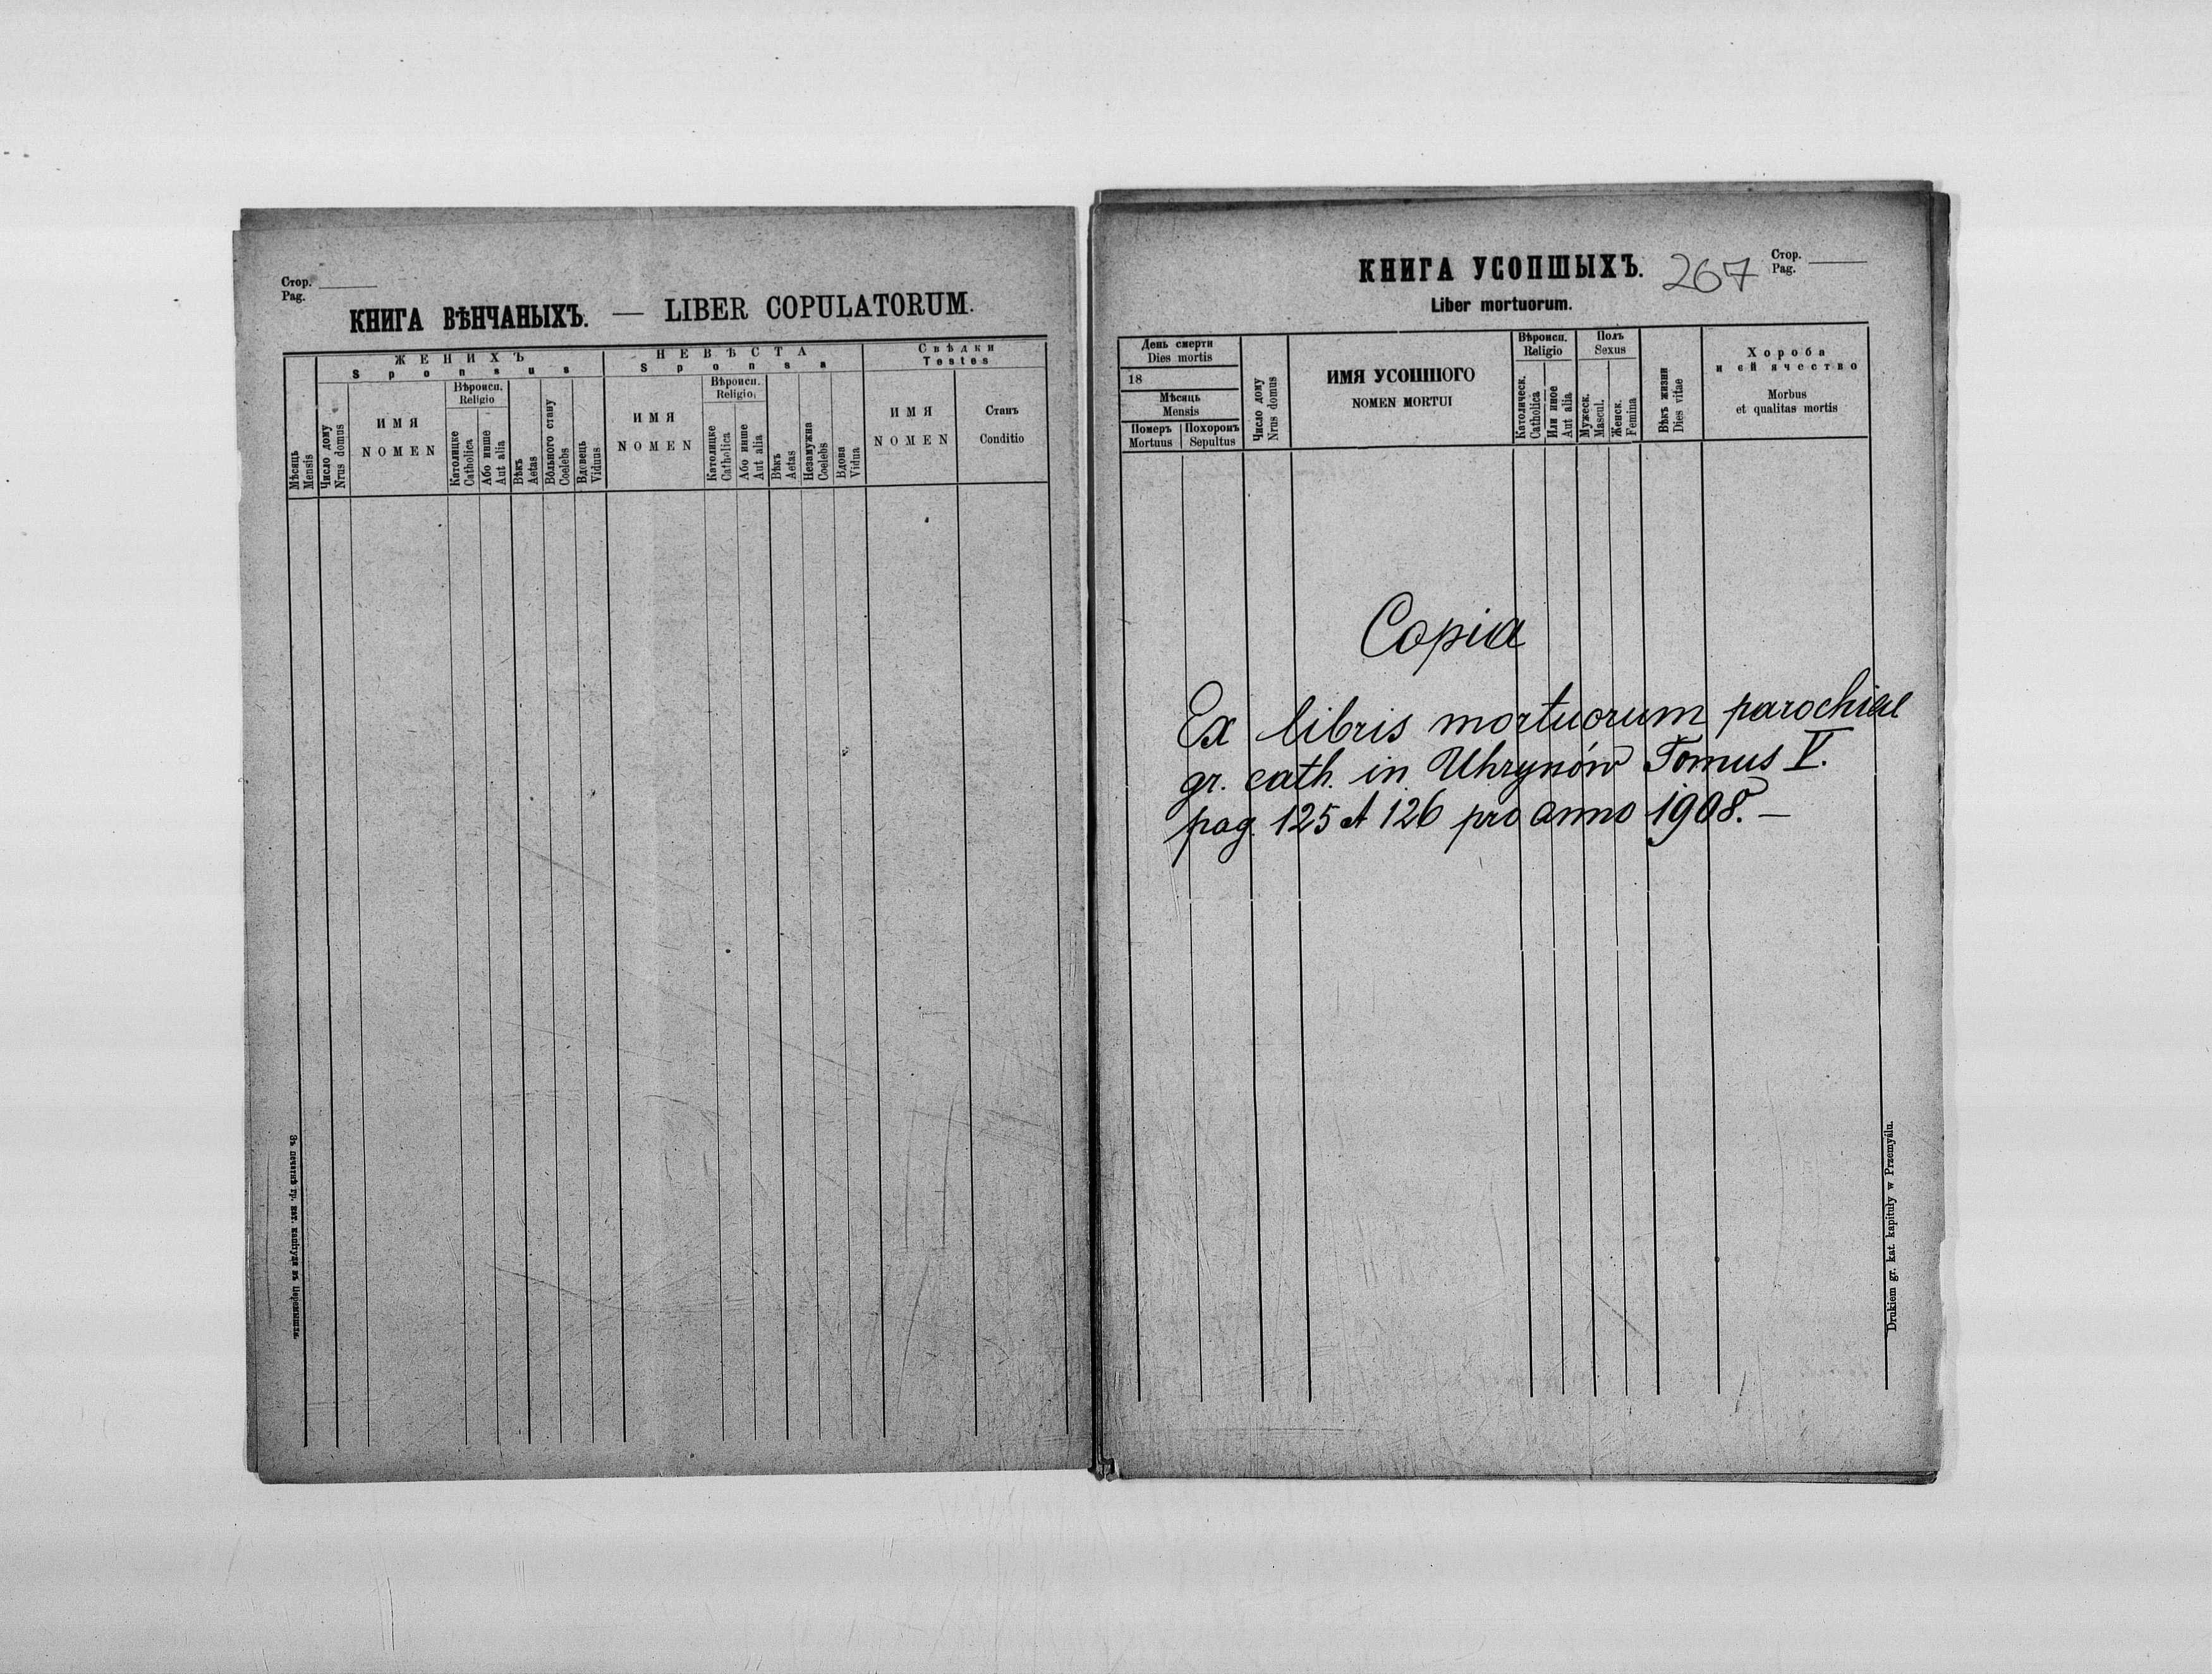 Стор.
Pag.
КНИГА ВѢНЧАНЫХЪ. — LIBER COPULATORUM.
Мѣсяць
Mensis
Число дому
Nrus domus
ЖЕНИХЪ
Sponsus
ИМЯ
NOMEN
Вѣроисп.
Religio
Католицке
Catholica
Або инше
Aut alia
Вѣкъ
Aetas
Вôльного стану
Coelebs
Вдовець
Viduus
НЕВѢСТА
Sponsa
ИМЯ
NOMEN
Вѣроисп.
Religio
Католицке
Catholica
Або инше
Aut alia
Вѣкъ
Aetas
Незамужна
Coelebs
Вдова
Vidua
Свѣдки
Testes
ИМЯ
NOMEN
Станъ
Conditio
Зъ печатнѣ гр. кат. капітулы въ Перемышли.
КНИГА УСОПШЫХЪ. 267
Стор.
Pag.
Liber mortuorum.
День смерти
Dies mortis
18
Мѣсяць
Mensis
Померъ
Mortuus
Похоронъ
Sepultus
Число дому
Nrus domus
ИМЯ УСОПШОГО
NOMEN MORTUI
Вѣроисп.
Religio
Католическ.
Catholica
Или иное
Aut alia
Полъ
Sexus
Мужеск.
Mascul.
Женск.
Femina
Вѣкъ жизни
Dies vitae
Хороба
и ей ячество
Morbus
et qualitas mortis
Copia
Ex libris mortuorum parochiae
gr. cath. in Uhrynów Tomus V.
pag. 125 et 126 pro anno 1908. —
Drukiem gr. kat. kapituły w Przemyślu.